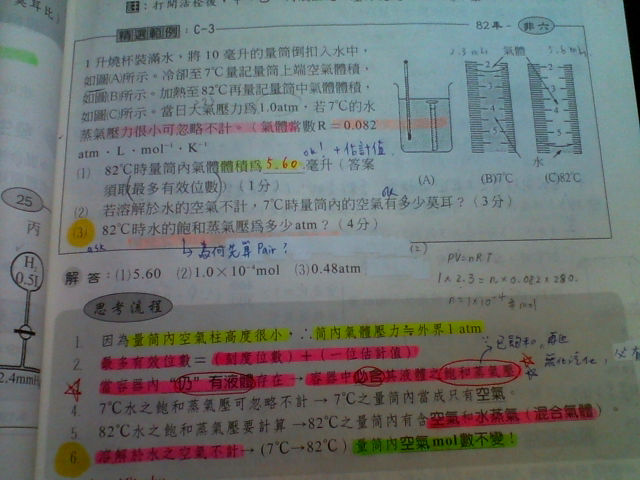 莫耳比)
註：打開活栓後，
精選範例：C-3
82年－非六
1升燒杯裝滿水，將10毫升的量筒倒扣入水中，
如圖(A)所示。冷卻至7℃量記量筒上端空氣體積，
如圖(B)所示。加熱至82℃再量記量筒中氣體體積，
如圖(C)所示。當日大氣壓力為1.0atm，若7℃的水
蒸氣壓力很小可忽略不計。(氣體常數R＝0.082
atm．L．mol⁻¹．K⁻¹
ok! + 估計值
(1) 82℃時量筒內氣體體積為5.60毫升（答案
須取最多有效位數）（1分）
ok
(2) 若溶解於水的空氣不計，7℃時量筒內的空氣有多少莫耳？（3分）
(3) 82℃時水的飽和蒸氣壓為多少atm？（4分）
ask
↳為何先算Pair？
2.3 mL 氣體 5.6 mL
2
3
4
5
2
3
4
5
水
(A) (B)7℃ (C)82℃
解答：(1)5.60 (2)1.0×10⁻⁴mol (3)0.48atm
(2)
PV=nRT
1×2.3=n×0.082×280.
n=1×10⁻⁴ mol
25
丙
H₂
0.5l
2.4mmH
思考流程
1. 因為量筒內空氣柱高度很小，∴筒內氣體壓力≒外界1 atm
2. 最多有效位數＝(刻度位數)＋(一位估計值)
已飽和，再也
無化汽化，
當容器內“仍”有液體存在→容器中必含某液體之飽和蒸氣壓
4. 7℃水之飽和蒸氣壓可忽略不計→7℃之量筒內當成只有空氣。
5. 82℃水之飽和蒸氣壓要計算→82℃之量筒內有含空氣和水蒸氣(混合氣體)。
6. 溶解於水之空氣不計→(7℃→82℃)量筒內空氣mol數不變！